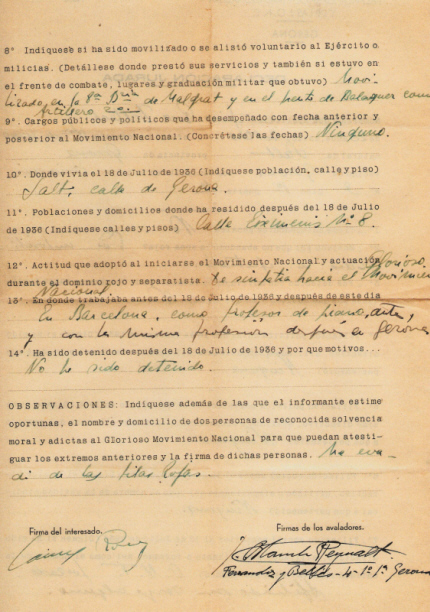 8º Indíquese si ha sido movilizado o se alistó voluntario al Ejército o
milicias. (Detállese donde prestó sus servicios y también si estuvo en
el frente de combate, lugares y graduación militar que obtuvo) Movi-
lizado, en la de Malgrat y en el frente de Balaguer como
Artillero
9º. Cargos públicos y políticos que ha desempeñado con fecha anterior y
posterior al Movimiento Nacional. (Concrétese las fechas) Ninguno.
10º. Donde vivía el 18 de Julio de 1936 (Indíquese población, calle y piso)
Salt, calle de Gerona.
11º. Poblaciones y domicilios donde ha residido después del 18 de Julio
de 1936 (Indíquese calles y pisos) Calle Eiximenis Nº 8.
12º. Actitud que adoptó al iniciarse el Movimiento Nacional y actuación
durante el dominio rojo y separatista. De simpatía hacia el Glorioso Movimiento
Nacional.
13º. En donde trabajaba antes del 18 de Julio de 1936 y después de este día
En Barcelona, como profesor de piano, antes,
y con la misma profesión después en Gerona
14º. Ha sido detenido después del 18 de Julio de 1936 y por que motivos...
No he sido detenido.
OBSERVACIONES: Indíquese además de las que el informante estime
oportunas, el nombre y domicilio de dos personas de reconocida solvencia
moral y adictas al Glorioso Movimiento Nacional para que puedan atesti-
guar los extremos anteriores y la firma de dichas personas. Me eva-
dí de las filas Rojas.
Firma del interesado.
Firmas de los avaladores.